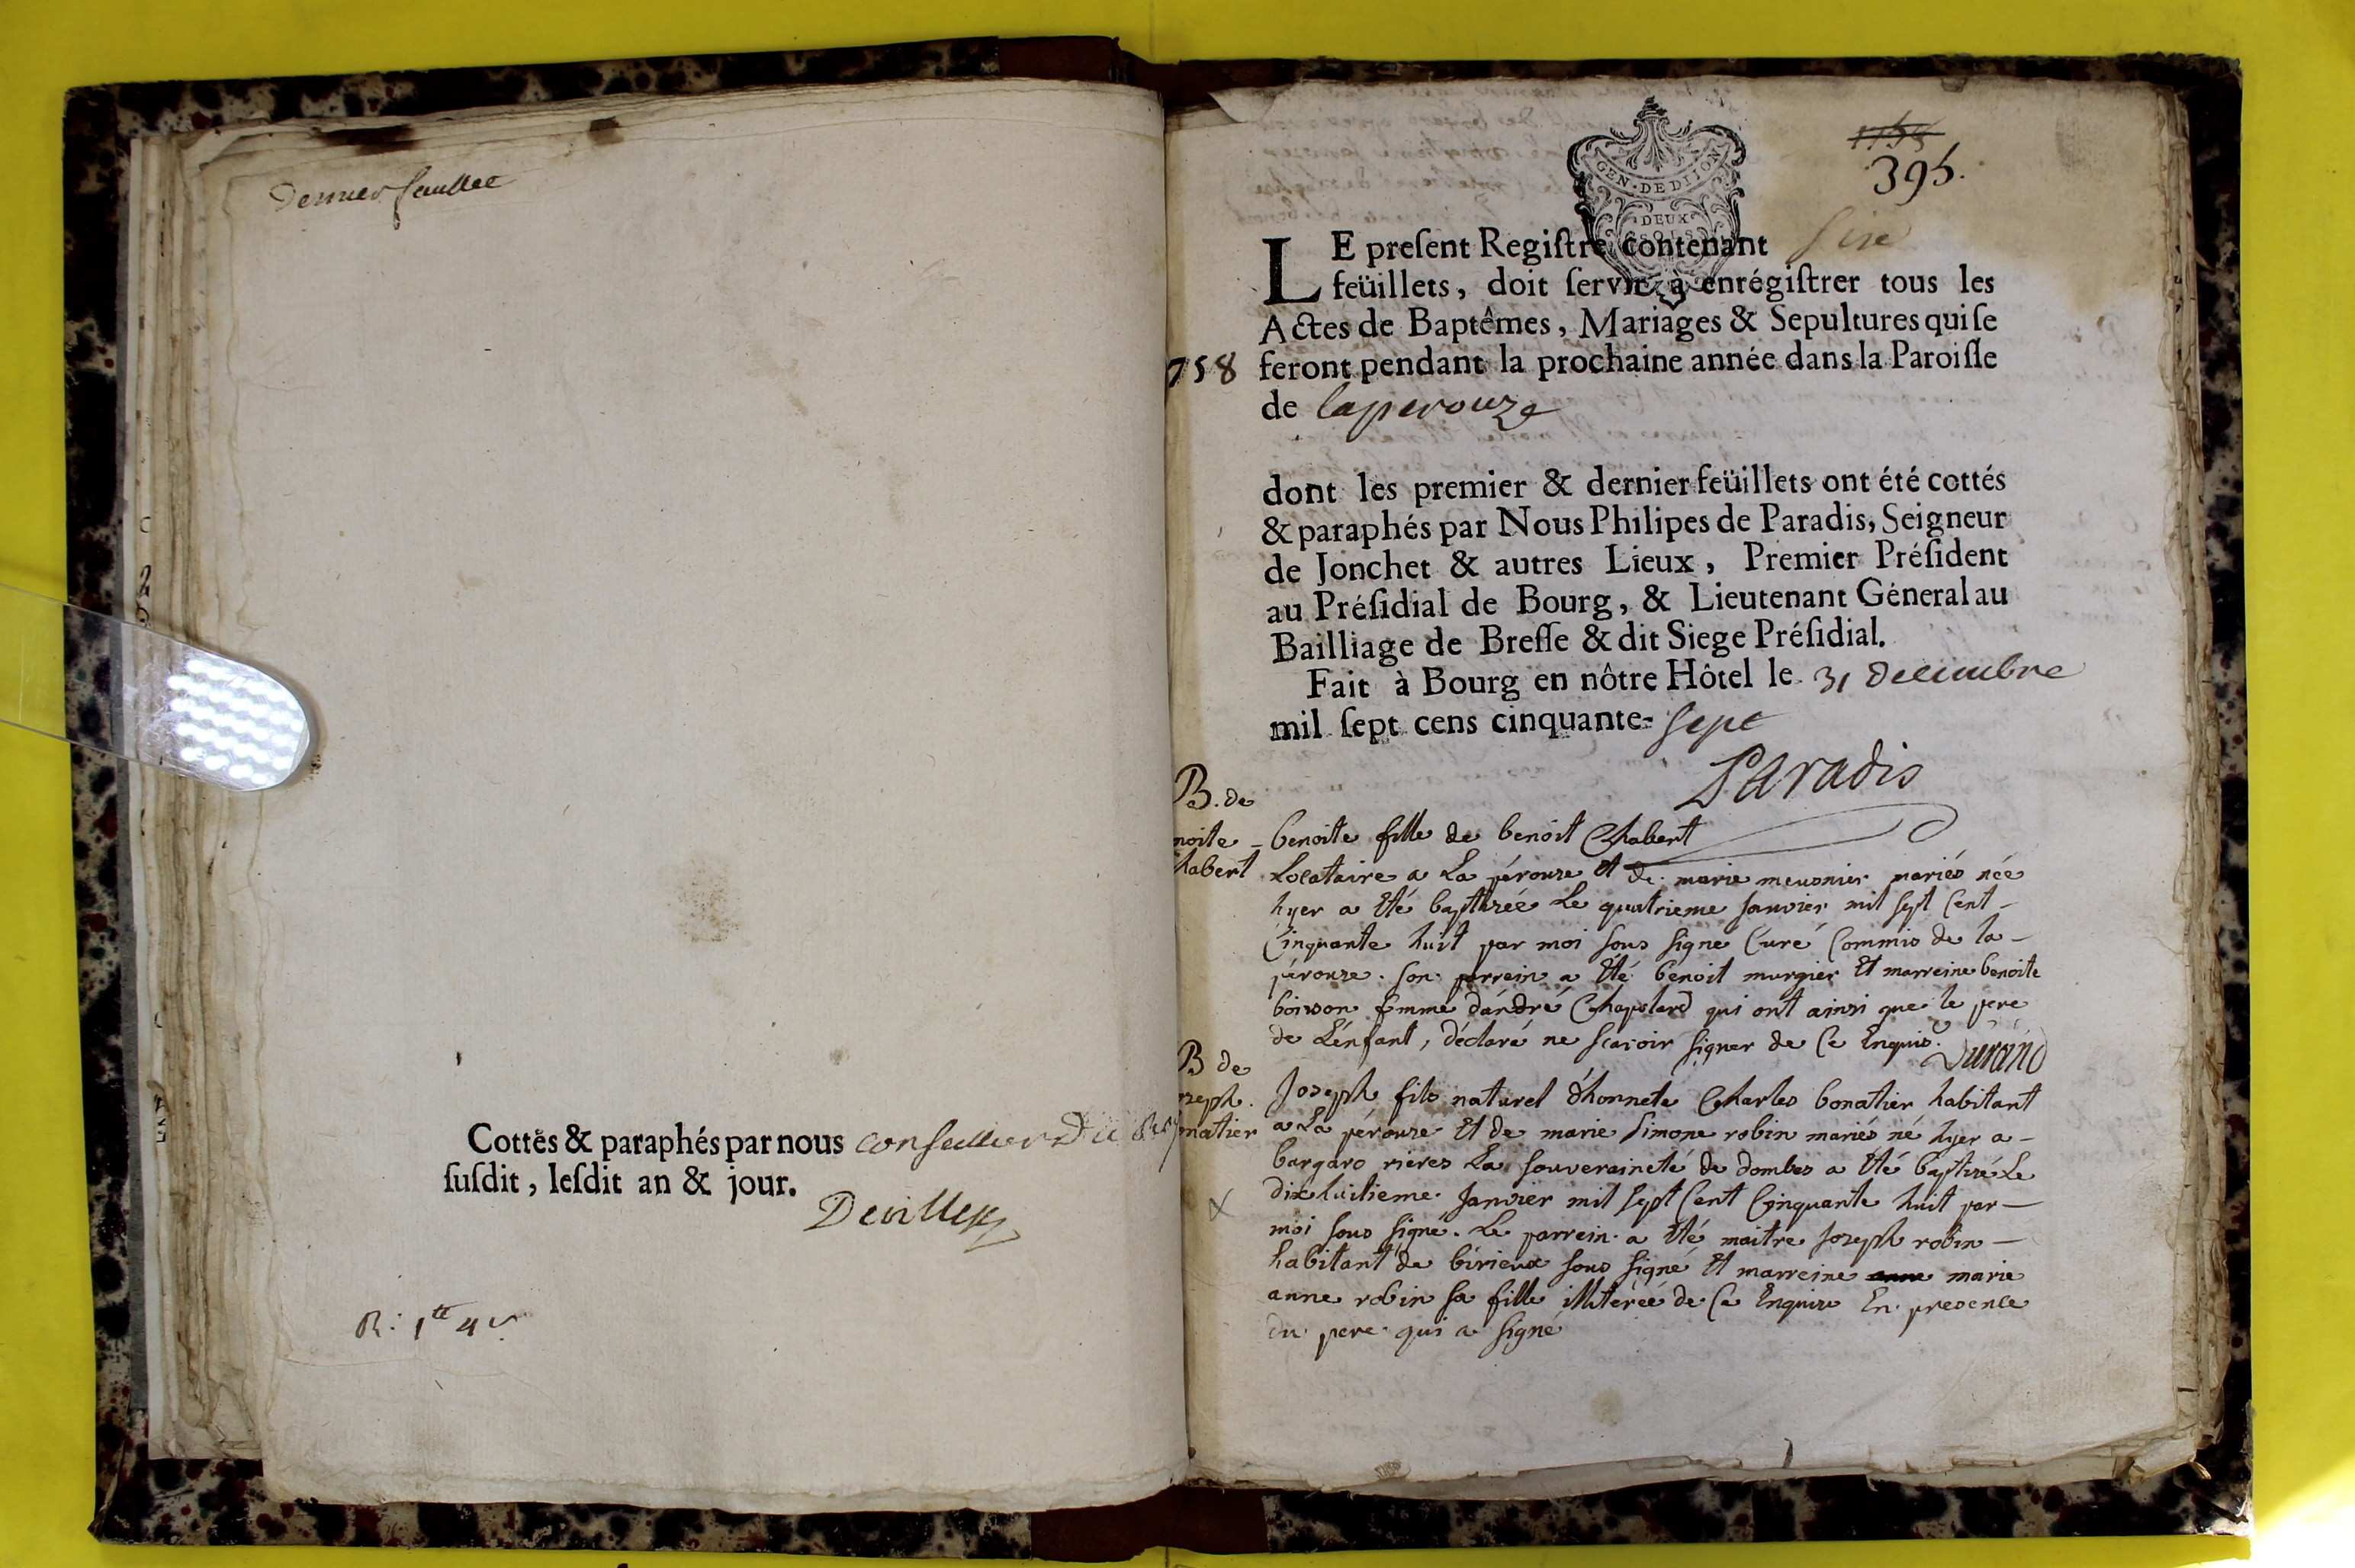 Dernier feuillet
Cottés & paraphés par nous conseiller du
susdit, lesdit an & jour.
R: 1tt 4s
GEN·DE DIJON
DEUX
SOLS
1754
395.
LE present Registre contenant sixe
feüillets, doit servir à enrégistrer tous les
Actes de Baptêmes, Mariages & Sepultures qui se
758 feront pendant la prochaine année dans la Paroisse
de laperouze
dont les premier & dernier feüillets ont été cottés
& paraphés par Nous Philipes de Paradis, Seigneur
de Jonchet & autres Lieux, Premier Président
au Présidial de Bourg, & Lieutenant Géneral au
Bailliage de Bresse & dit Siege Présidial.
Fait à Bourg en nôtre Hôtel le 31 decembre
mil sept cens cinquante-sept
Paradis
B. de
noite
habert
benoite fille de benoit Chabert
Locataire a La pérouze et de marie meusnier mariés née
hyer a Eté baptizée Le quatrieme Janvier mil sept Cent
Cinquante huit par moi sous signé Curé Commis de la
pérouze. son parrein a Eté benoit murgier Et marreine benoite
boisson femme d'andré Chapolard qui ont ainsi que le pere
de L'enfant, déclaré ne scavoir signer de Ce Enquis.
Durand
B de
oseph.
onatier
Joseph fils naturel d'honnete Charles bonatier habitant
a La pérouze Et de marie Simone robin mariés né hyer a
bargaro rieres La souveraineté de dombes a Eté baptizé Le
dix huitieme Janvier mil sept Cent Cinquante huit par
moi sous signé. Le parrein a Eté maitre Joseph robin
habitant de birieux sous signé Et marreine anne marie
anne robin sa fille illiterée de Ce Enquise En presence
du pere qui a signé